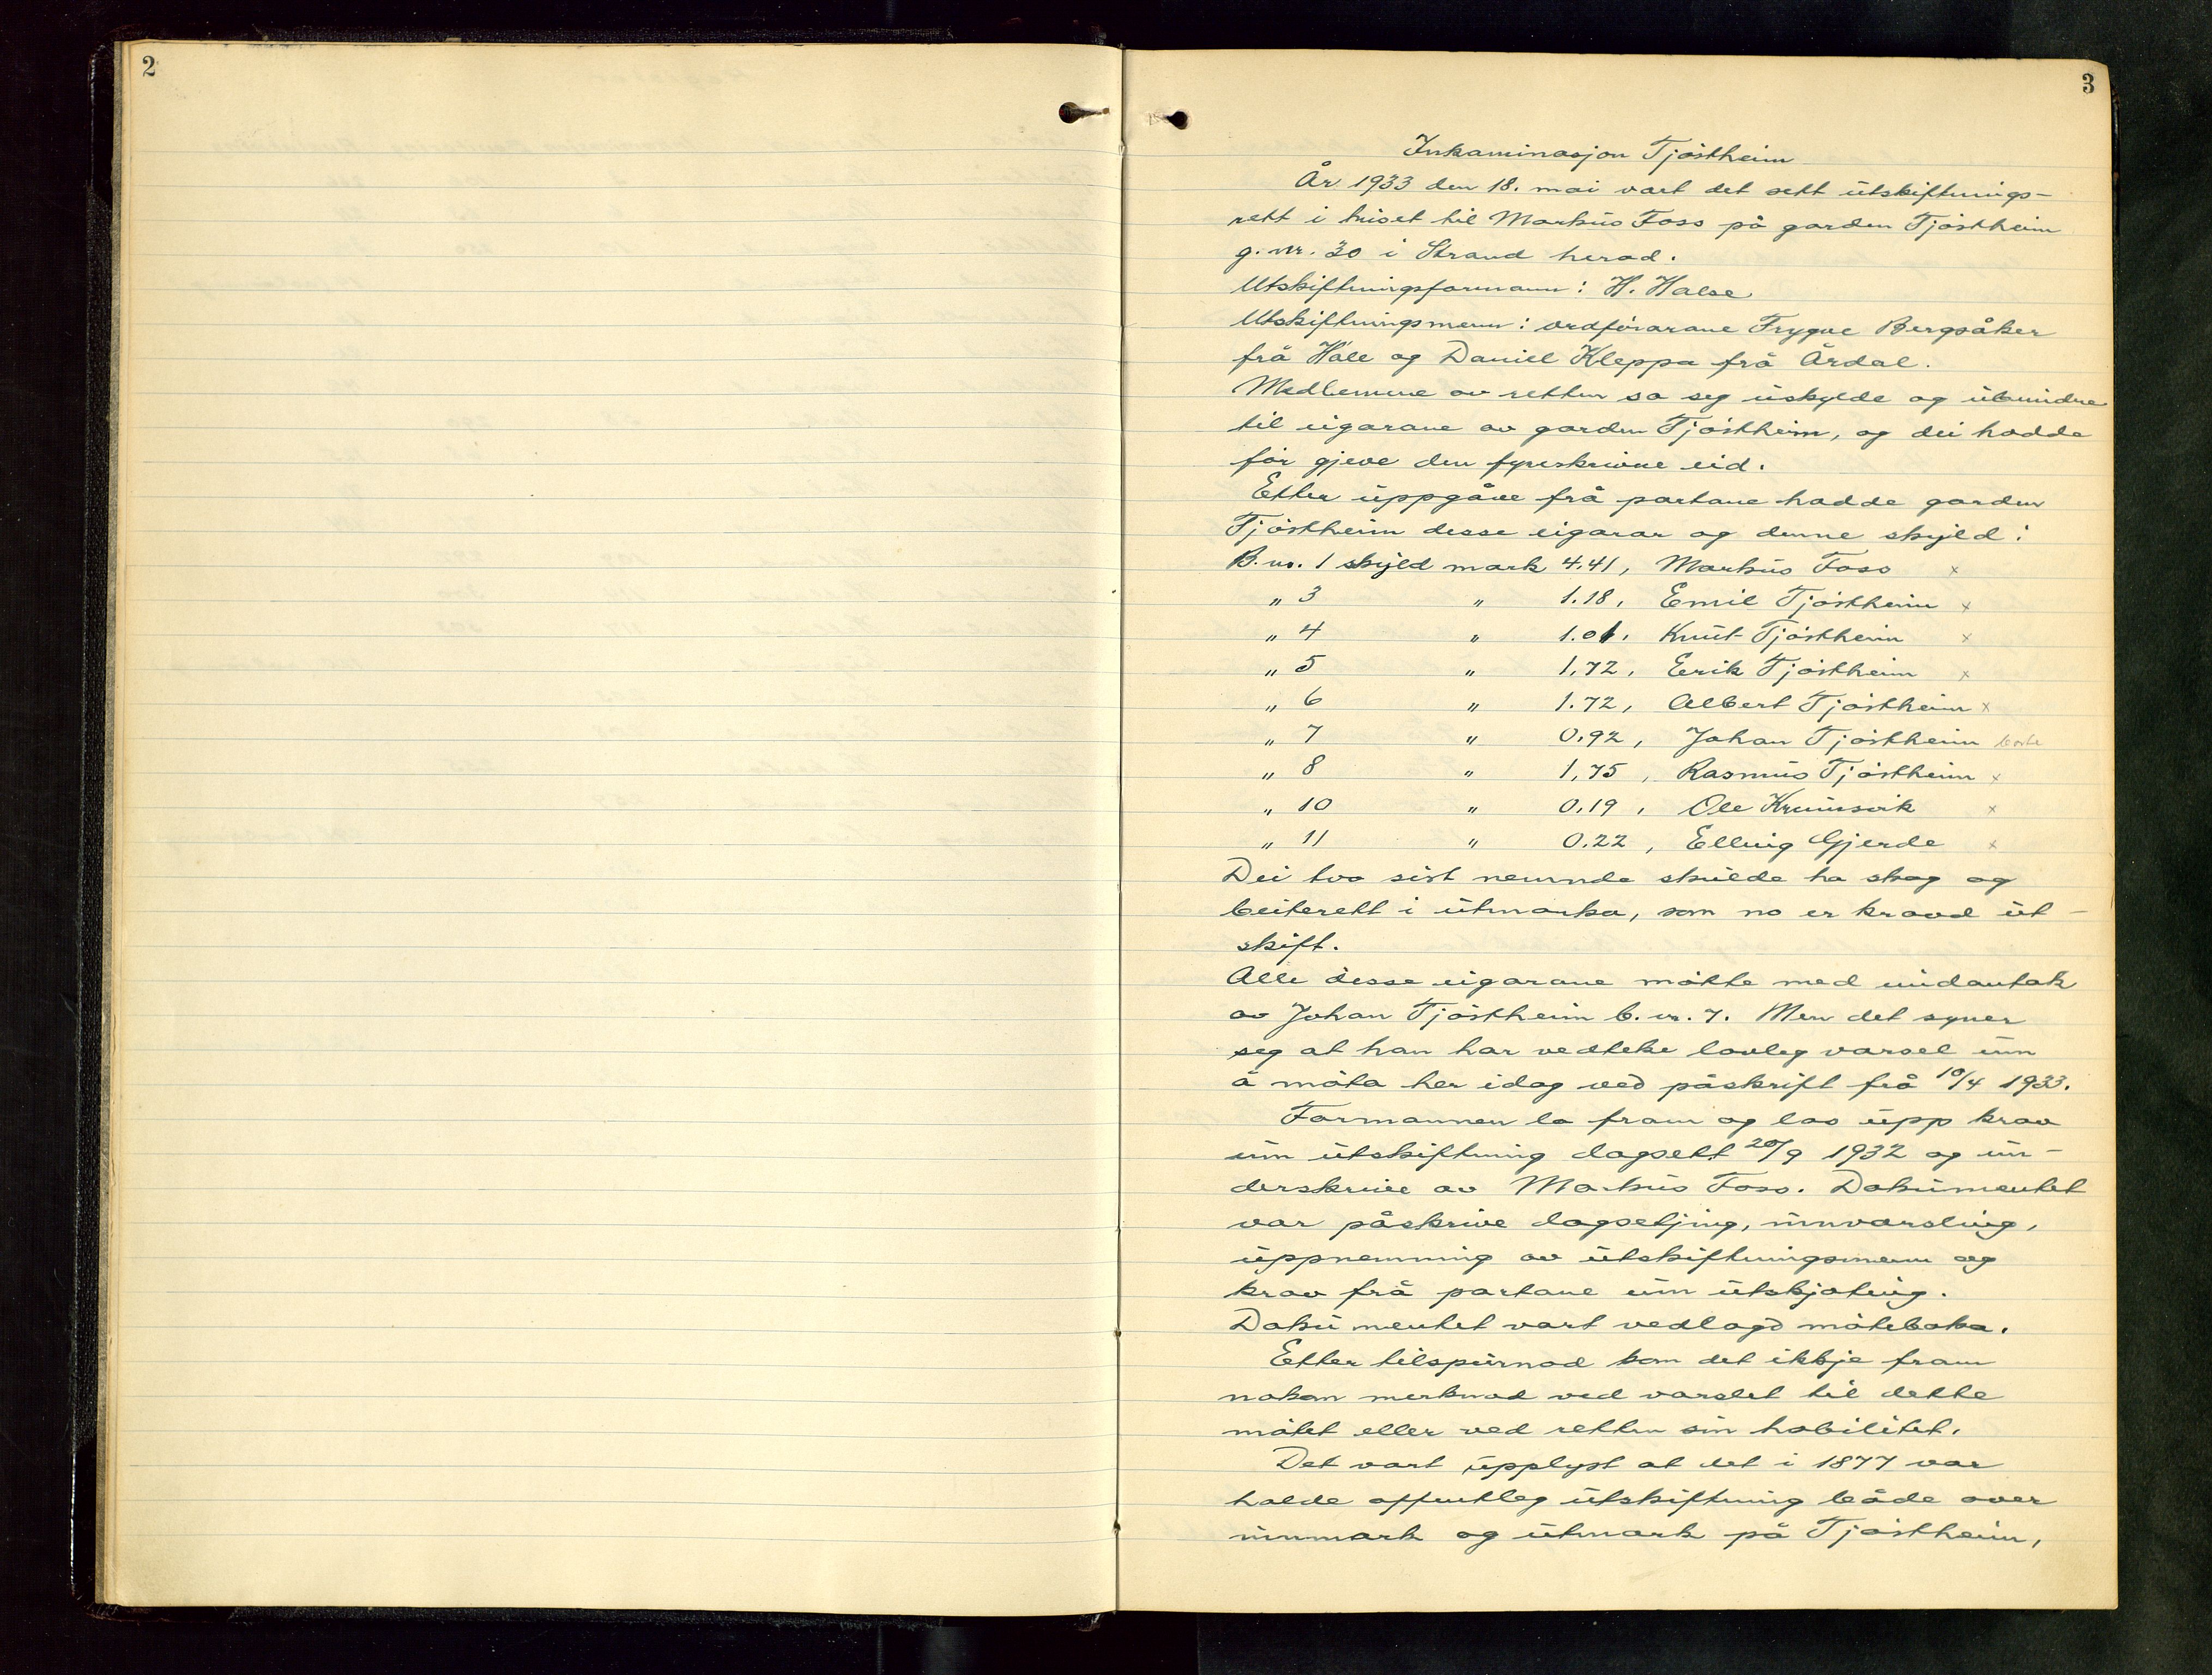 2
3
Inkaminasjon Tjöstheim
År 1933 den 18. mai vart det sett utskiftnings-
rett i huset til Markus Foss på garden Tjöstheim
g. nr. 30 i Strand herad.
Utskiftningsformann: H. Halse
Utskiftningsmenn: ordförarane Trygve Bergsåker
frå Hale og Daniel Kleppa frå Årdal.
Medlemene av retten sa seg uskylde og ubundne
til eigarane av garden Tjöstheim, og dei hadde
för gjeve den fyreskrivne eid.
Etter uppgåve frå partane hadde garden
Tjöstheim desse eigarar og denne skyld:
B. nr. 1 skyld mark 4.41, Markus Foss x
" 3 " 1.18, Emil Tjöstheim x
" 4 " 1.01, Knut Tjöstheim x
" 5 " 1,72, Erik Tjöstheim x
" 6 " 1.72, Albert Tjöstheim x
" 7 " 0.92, Johan Tjöstheim borte
" 8 " 1,75, Rasmus Tjöstheim x
" 10 " 0.19, Ole Krunsvik x
" 11 " 0.22, Elling Gjerde x
Dei tvo sist nemnde skulde ha skog og
beiterett i utmarka, som no er kravd ut-
skift.
Alle desse eigarane mötte med undantak
av Johan Tjöstheim b. nr. 7. Men det syner
seg at han har vedteke lovleg varsel um
å möta her idag ved påskrift frå 10/4 1933.
Formannen la fram og las upp krav
um utskiftning dagsett 20/9 1932 og un-
derskrive av Markus Foss. Dokumentet
var påskrive dagsetjing, umvarsling,
uppnemning av utskiftningsmenn og
krav frå partane um utskjoting.
Dokumentet vart vedlagd möteboka.
Etter tilspurnad kom det ikkje fram
nokon merknad ved varslet til dette
mötet eller ved retten sin habilitet.
Det vart upplyst at det i 1877 var
halde offentleg utskiftning både over
innmark og utmark på Tjöstheim,